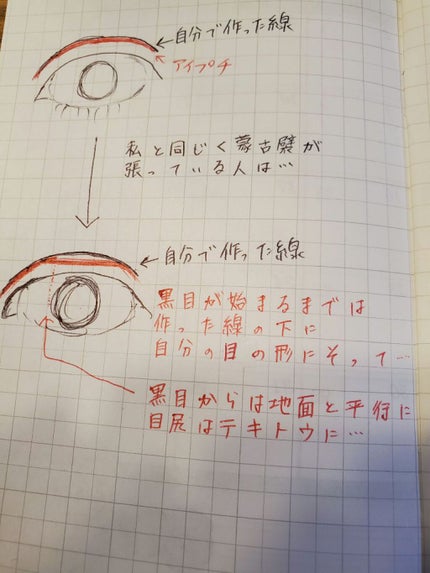 ←自分で作った線
アイプチ
私と同じく蒙古襞が
張っている人は…
←自分で作った線
黒目が始まるまでは
作った線の下に
自分の目の形にそって…
黒目からは地面と平行に
目尻はテキトウに…